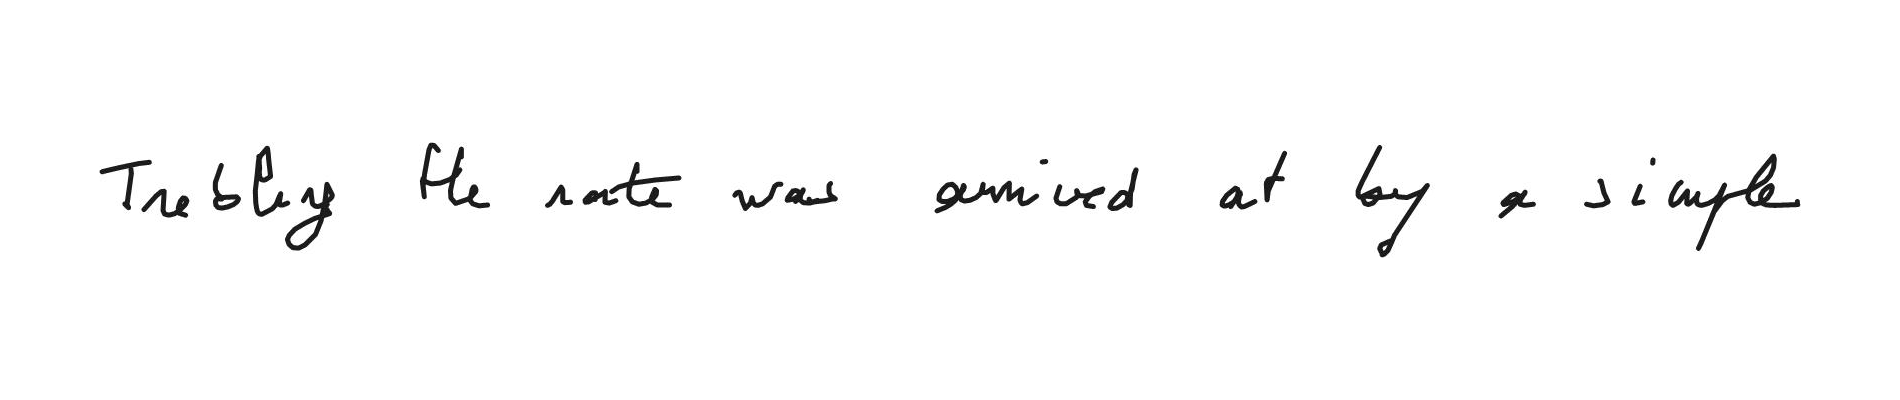 Trebling the rate was arrived at by a simple